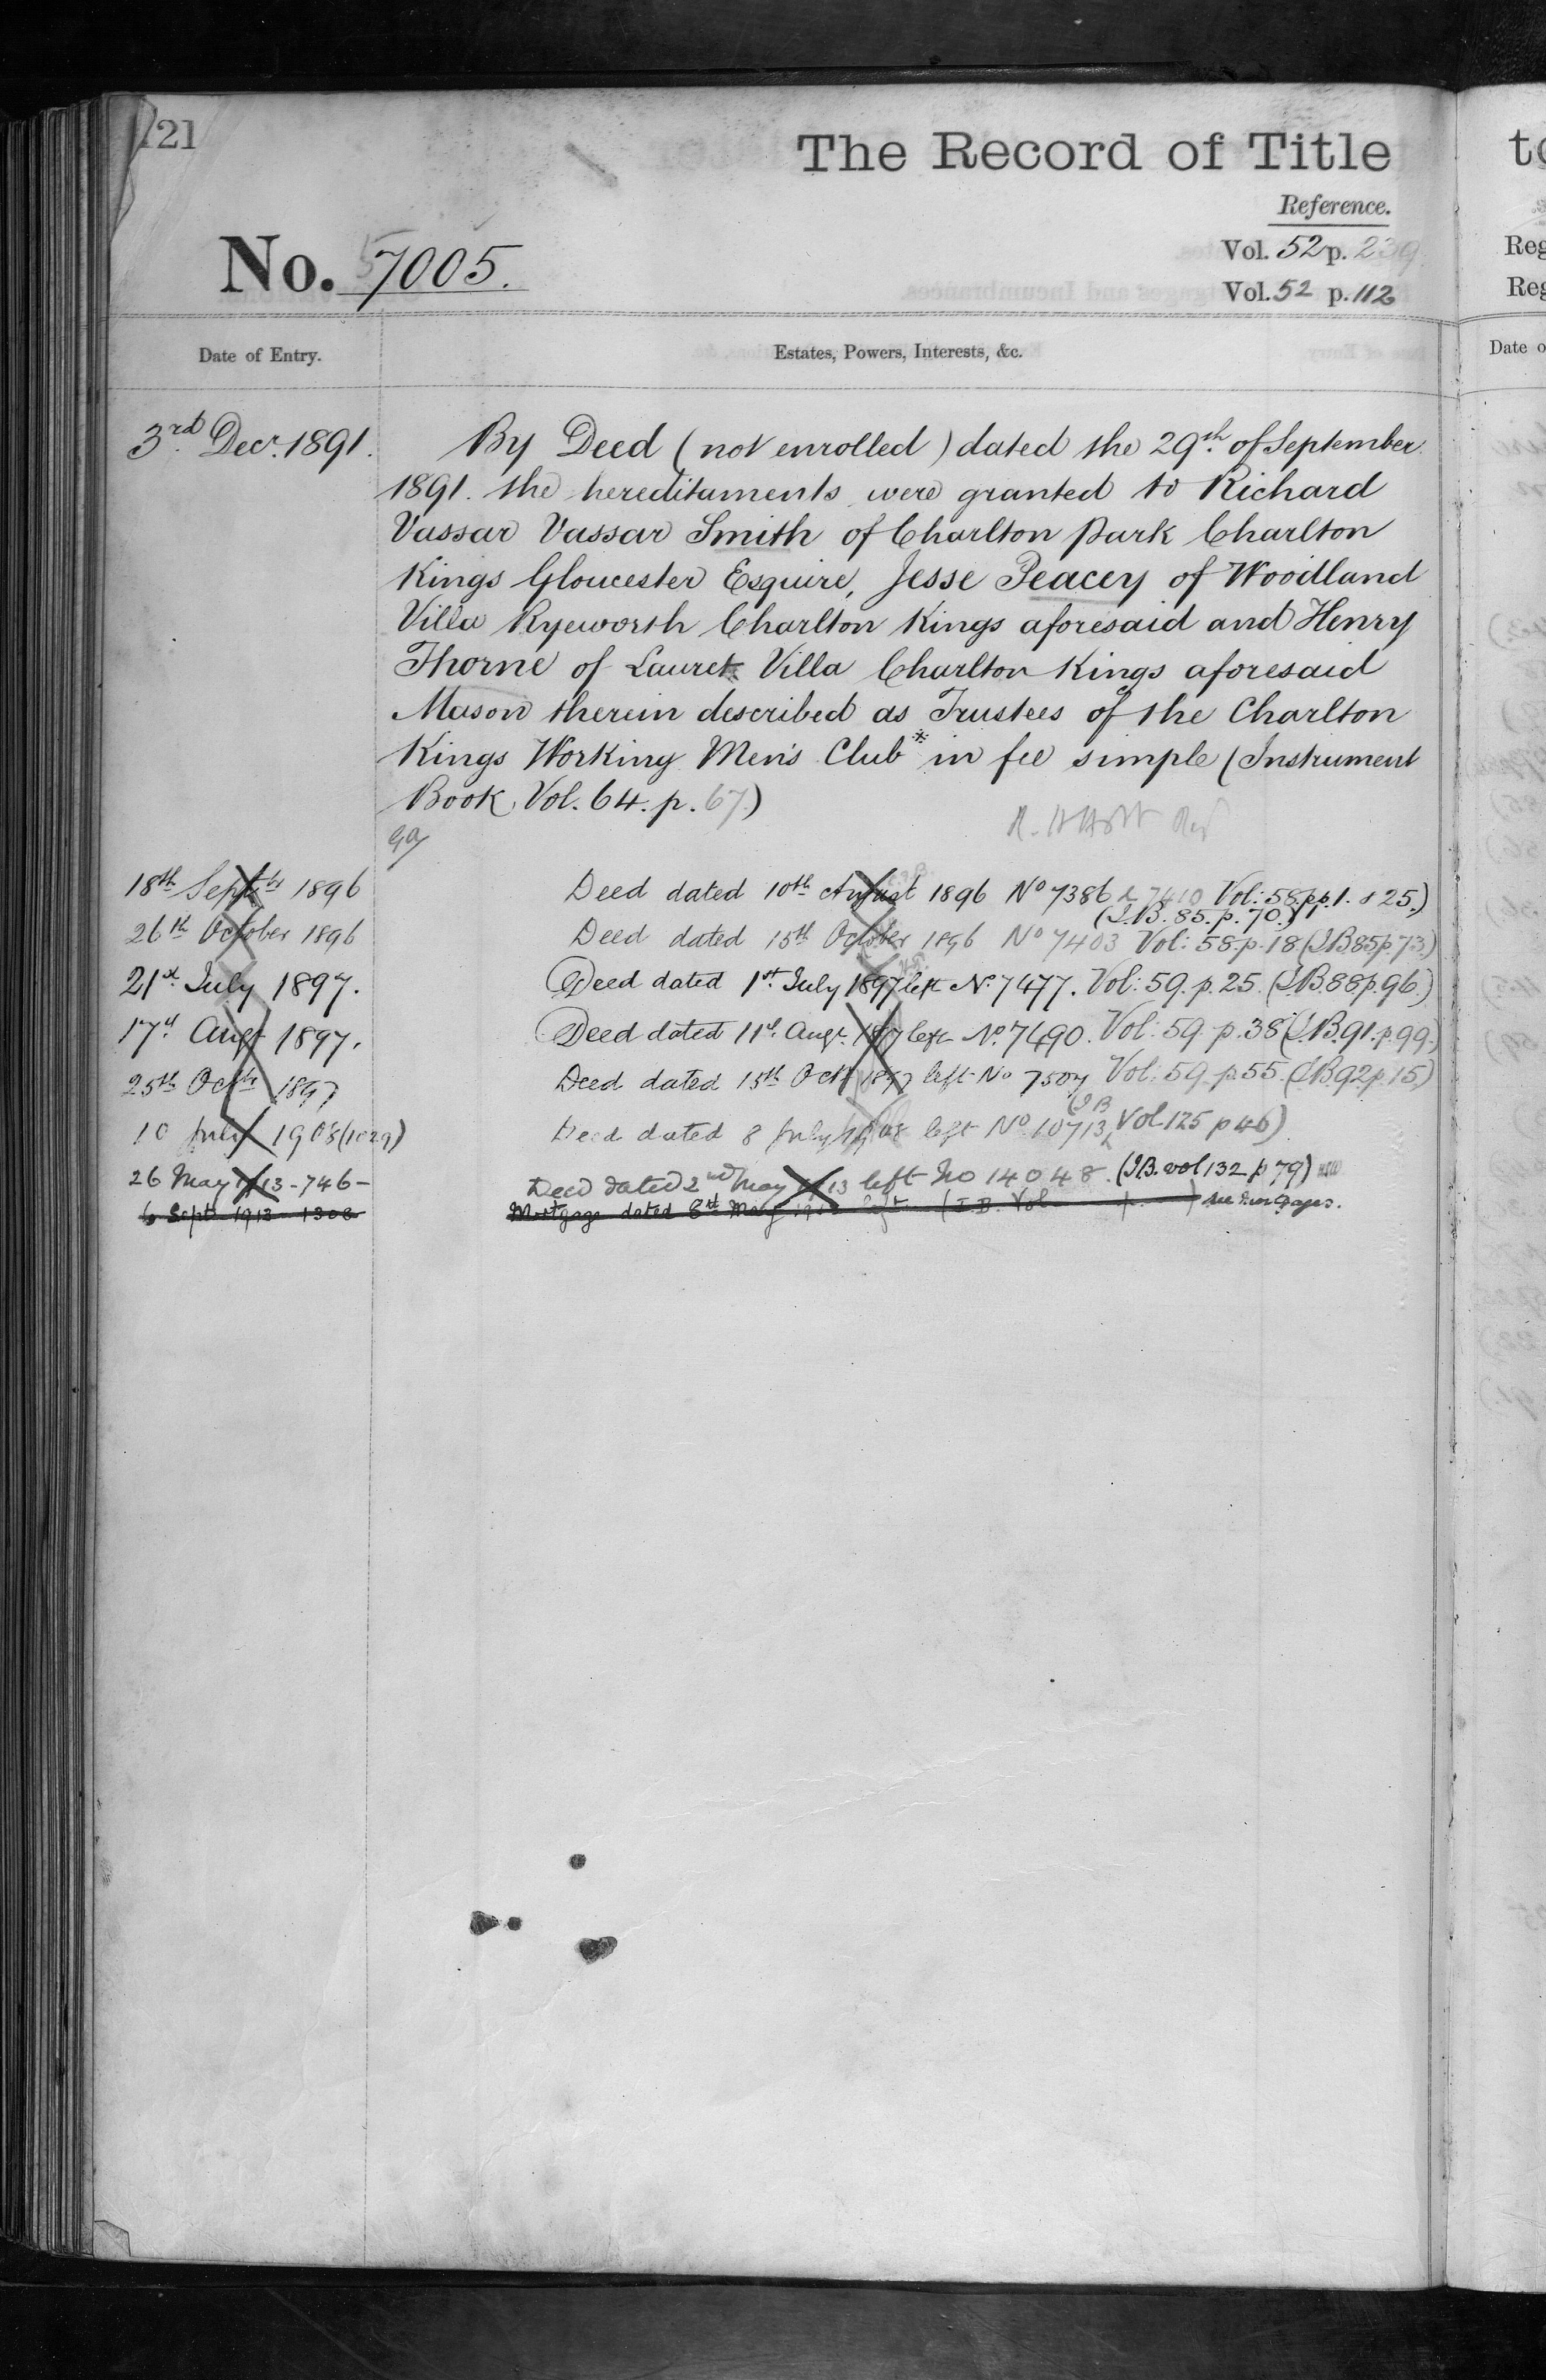 121
The Record of Title
Reference.
No. 7005.
Vol. 52 p. 239
Vol. 52 p. 112
Date of Entry.
Estates, Powers, Interests, &c.
3rd Decr. 1891.
By Deed (not enrolled) dated the 29th of September
1891. the hereditaments were granted to Richard
Vassar Vassar Smith of Charlton Park Charlton
Kings Gloucester Esquire, Jesse Peacey of Woodland
Villa Ryeworth Charlton Kings aforesaid and Henry
Thorne of Laurel Villa Charlton Kings aforesaid
Mason therein described as Trustees of the Charlton
Kings Working Men's Club* in fee simple (Instrument
Book, Vol. 64. p. 67.)
18th Septbr 1896 Deed dated 10th August 1896 No 7386 & 7410 Vol: 58. pp. 1. & 25.)
(I.B. 85. p. 70.)
26th October 1896 Deed dated 15th October 1896 No 7403 Vol: 58. p. 18 (I.B 85 p 73.)
21st July 1897. Deed dated 1st July 1897 left No. 7477. Vol: 59. p. 25. (I.B. 88 p. 96.)
17th Augt 1897. Deed dated 11th Augt. 1897 left No. 7490. Vol: 59. p. 38 (I.B. 91. p. 99.)
25th Octbr 1897 Deed dated 15th Octr 1897 left No 7507 Vol: 59. p. 55. (I.B. 92 p. 15.)
10 July 1908 (1029) Deed dated 8 July 1908 left No 10713 (I B Vol 125 p 46)
26 May 1913 - 746 - Deed dated 2nd May 1913 left No 14048. (I.B. vol 132 p 79)
6 Sept. 1913 1308 Mortgage dated 8th May left (I.B. Vol p. ) see Mortgages.
to
Reg
Reg
Date o